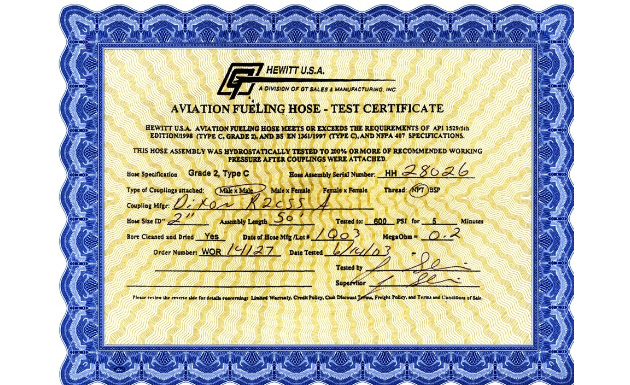 HEWITT U.S.A.
A DIVISION OF GT SALES & MANUFACTURING, INC
AVIATION FUELING HOSE - TEST CERTIFICATE
HEWITT U.S.A. AVIATION FUELING HOSE MEETS OR EXCEEDS THE REQUIREMENTS OF API 1529/5th
EDITION/1998 (TYPE C, GRADE 2), AND BS EN 1361/1997 (TYPE C), AND NFPA 407 SPECIFICATIONS.
THIS HOSE ASSEMBLY WAS HYDROSTATICALLY TESTED TO 200% OR MORE OF RECOMMENDED WORKING
PRESSURE AFTER COUPLINGS WERE ATTACHED.
Hose Specification Grade 2, Type C Hose Assembly Serial Number: HH 28026
Type of Couplings attached: Male x Male Male x Female Female x Female Thread: NPT BSP
Coupling Mfgr: Dixon R2CSS A
Hose Size ID" 2" Assembly Length 50' Tested to: 600 PSI for 5 Minutes
Bore Cleaned and Dried Yes Date of Hose Mfg /Lot # 1Q03 MegaOhm = 0.2
Order Number: WOR 14127 Date Tested 6/14/03
Tested by
Supervisor
Please review the reverse side for details concerning: Limited Warranty, Credit Policy, Cash Discount Terms, Freight Policy, and Terms and Conditions of Sale.